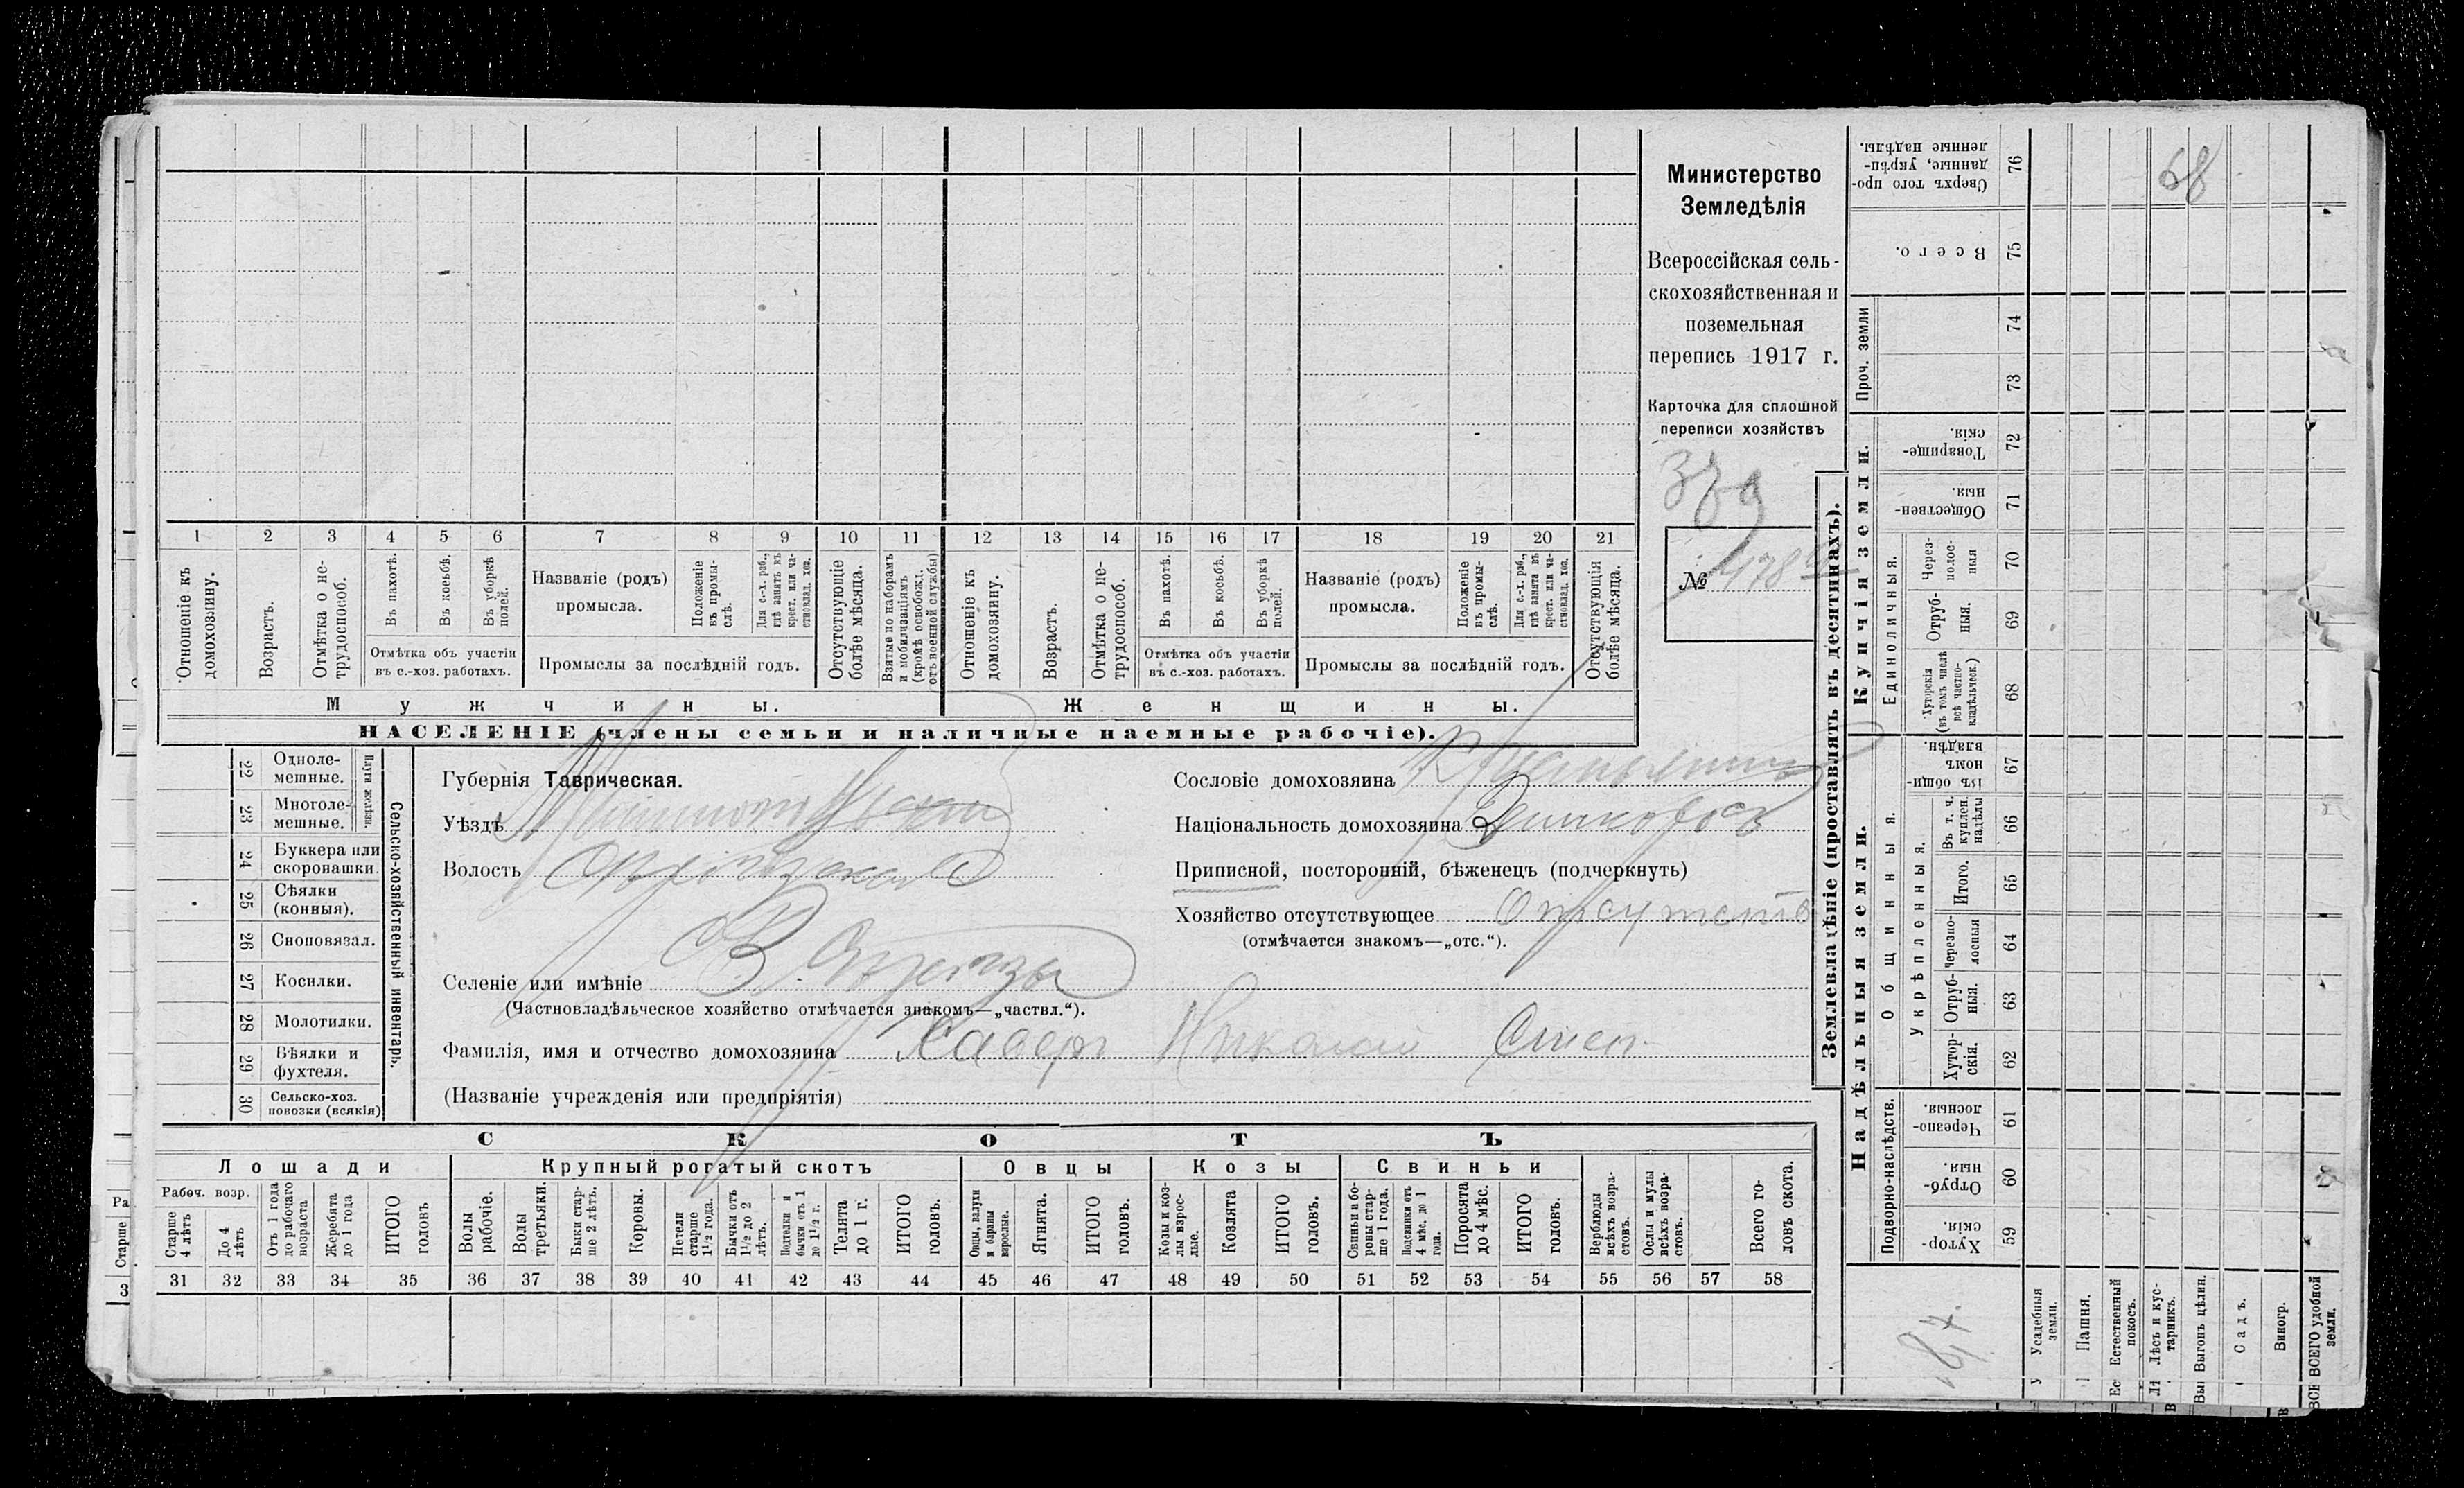 1 2 3 4 5 6 7 8 9 10 11 12 13 14 15 16 17 18 19 20 21
Отношеніе къ домохозяину.
Возрастъ.
Отмѣтка о не-
трудоспособ.
Въ пахотѣ.
Въ косьбѣ.
Въ уборкѣ полей.
Отмѣтка объ участіи
въ с.-хоз. работахъ.
Названіе (родъ)
промысла.
Положеніе въ промы-
слѣ.
Для с.-х. раб., гдѣ занятъ въ крест. или ча-
стновлад. хоз.
Промыслы за послѣдній годъ.
Отсутствующіе
болѣе мѣсяца.
Взятые по наборамъ
и мобилизаціямъ
(кромѣ освобожд.
отъ военной службы)
Отношеніе къ
домохозяину.
Возрастъ.
Отмѣтка о не-
трудоспособ.
Въ пахотѣ.
Въ косьбѣ.
Въ уборкѣ полей.
Отмѣтка объ участіи
въ с.-хоз. работахъ.
Названіе (родъ)
промысла.
Положеніе въ промы-
слѣ.
Для с.-х. раб., гдѣ занята въ крест. или ча-
стновлад. хоз.
Промыслы за послѣдній годъ.
Отсутствующія
болѣе мѣсяца.
Мужчины. Женщины.
НАСЕЛЕНІЕ (члены семьи и наличные наемные рабочіе).
Министерство
Земледѣлія
Всероссійская сель-
скохозяйственная и
поземельная
перепись 1917 г.
Карточка для сплошной
переписи хозяйствъ
389
№ 478
22 Однолемешные.
23 Многолемешные.
Плуги желѣзн.
24 Буккера или скоропашки.
25 Сѣялки (конныя).
26 Сноповязал.
27 Косилки.
28 Молотилки.
29 Вѣялки и фухтеля.
30 Сельско-хоз. повозки (всякія)
Сельско-хозяйственный инвентарь.
Губернія Таврическая.
Уѣздъ
Волость
Селеніе или имѣніе
(Частновладѣльческое хозяйство отмѣчается знакомъ—„частвл.“).
Фамилія, имя и отчество домохозяина Николай Степ
(Названіе учрежденія или предпріятія)
Сословіе домохозяина
Національность домохозяина
Приписной, посторонній, бѣженецъ (подчеркнуть)
Хозяйство отсутствующее отсутств
(отмѣчается знакомъ—„отс.“).
СКОТЪ
Лошади Крупный рогатый скотъ Овцы Козы Свиньи
Рабоч. возр.
Старше 4 лѣтъ
До 4 лѣтъ
Отъ 1 года до рабочаго возраста
Жеребята до 1 года
ИТОГО головъ
Волы рабочіе.
Волы третьяки.
Быки стар-
ше 2 лѣтъ.
Коровы.
Нетели старше 1½ года.
Бычки отъ 1½ до 2 лѣтъ.
Подтелки и бычки отъ 1 до 1½ г.
Телята до 1 г.
ИТОГО головъ.
Овцы, валухи и бараны взрослые.
Ягнята.
ИТОГО головъ.
Козы и коз-
лы взрос-
лые.
Козлята
ИТОГО головъ.
Свиньи и бо-
ровы стар-
ше 1 года.
Подсвинки отъ 4 мѣс. до 1 года.
Поросята до 4 мѣс.
ИТОГО головъ.
Верблюды всѣхъ возра-
стовъ.
Ослы и мулы всѣхъ возра-
стовъ.
Всего го-
ловъ скота.
31 32 33 34 35 36 37 38 39 40 41 42 43 44 45 46 47 48 49 50 51 52 53 54 55 56 57 58
Землевладѣніе (проставлять въ десятинахъ).
Надѣльныя земли. Купчія земли.
Подворно-наслѣдств.
Общинныя.
Укрѣпленныя.
Единоличныя.
Проч. земли
59 Хутор-
скія.
60 Отруб-
ныя.
61 Черезпо-
лосныя.
62 Хутор-
скія.
63 Отруб-
ныя.
64 черезпо-
лосныя
65 Итого.
66 Въ т. ч. куплен. надѣлы
67 Въ общин-
номъ владѣн.
68 Хуторскія (въ томъ числѣ всѣ частно-
владѣльческ.)
69 Отруб-
ныя.
70 Через-
полос-
ныя
71 Обществен-
ныя.
72 Товарище-
скія.
73
74
75 Всего.
76 Сверхъ того про-
данные, укрѣп-
ленные надѣлы.
68
87.
Усадебныя земли.
Пашня.
Естественный покосъ.
Лѣсъ и кус-
тарникъ.
Выгонъ цѣлин.
Садъ.
Виногр.
ВСЕГО удобной земли.